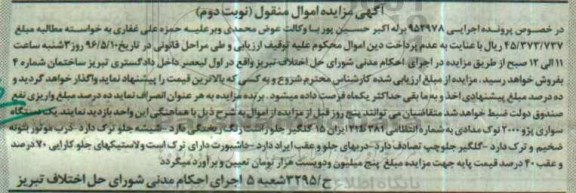 آگهی مزایده اموال منقول (نوبت دوم)
در خصوص پرونده اجرایی ۹۵۳۹۷۸ برله اکبر حسین پور با وکالت عوض محمدی و بر علیه حمزه علی غفاری به خواسته مطالبه مبلغ
۴۵/۳۷۳/۷۳۷ ریال با عنایت به عدم پرداخت دین اموال محکوم علیه توقیف ارزیابی و طی مراحل قانونی در تاریخ ۹۶/۵/۱۰ روز ۳ شنبه ساعت
۱۱ الی ۱۲ صبح از طریق مزایده در اجرای احکام مدنی شورای حل اختلاف تبریز واقع در اول لیعصر داخل دادگستری تبریز ساختمان شماره ۴
بفروش خواهد رسید. مزایده از مبلغ ارزیابی شده کارشناس محترم شروع و به کسی که بالاترین قیمت را پیشنهاد نماید واگذار خواهد گردید و
ده درصد مبلغ پیشنهادی اخذ و به ما بقی حداکثر یکماه فرصت داده میشود. برنده مزایده به هر عنوان انصراف نماید ده درصد مبلغ واریزی نفع
صندوق دولت ضبط خواهد شد متقاضیان می توانند پنج روز قبل از مزایده از اموال به شرح ذیل با هماهنگی این واحد بازدید نمایند یک دستگاه
سواری پژو ۲۰۰۰ نوک مدادی به شماره انتظامی ۳۸۱ ایران ۱۵ گلگیر جلو راست رنگ ریختگی دارد - شیشه جلو ترک دارد - درب موتور بتونه
ضخیم و ترک دارد - گلگیر جلو چپ تصادف دارد - دربهای جلو و عقب ایراد دارد - داشبورت دارای ترک است و لاستیکهای جلو کارایی ۷۰ درصد
و عقب ۴۰ درصد قیمت پایه جهت مزایده مبلغ پنج میلیون و دویست هزار تومان تعیین و برآورد میگردد
ح/۳۲۹۵ شعبه ۵ اجرای احکام مدنی شورای حل اختلاف تبریز